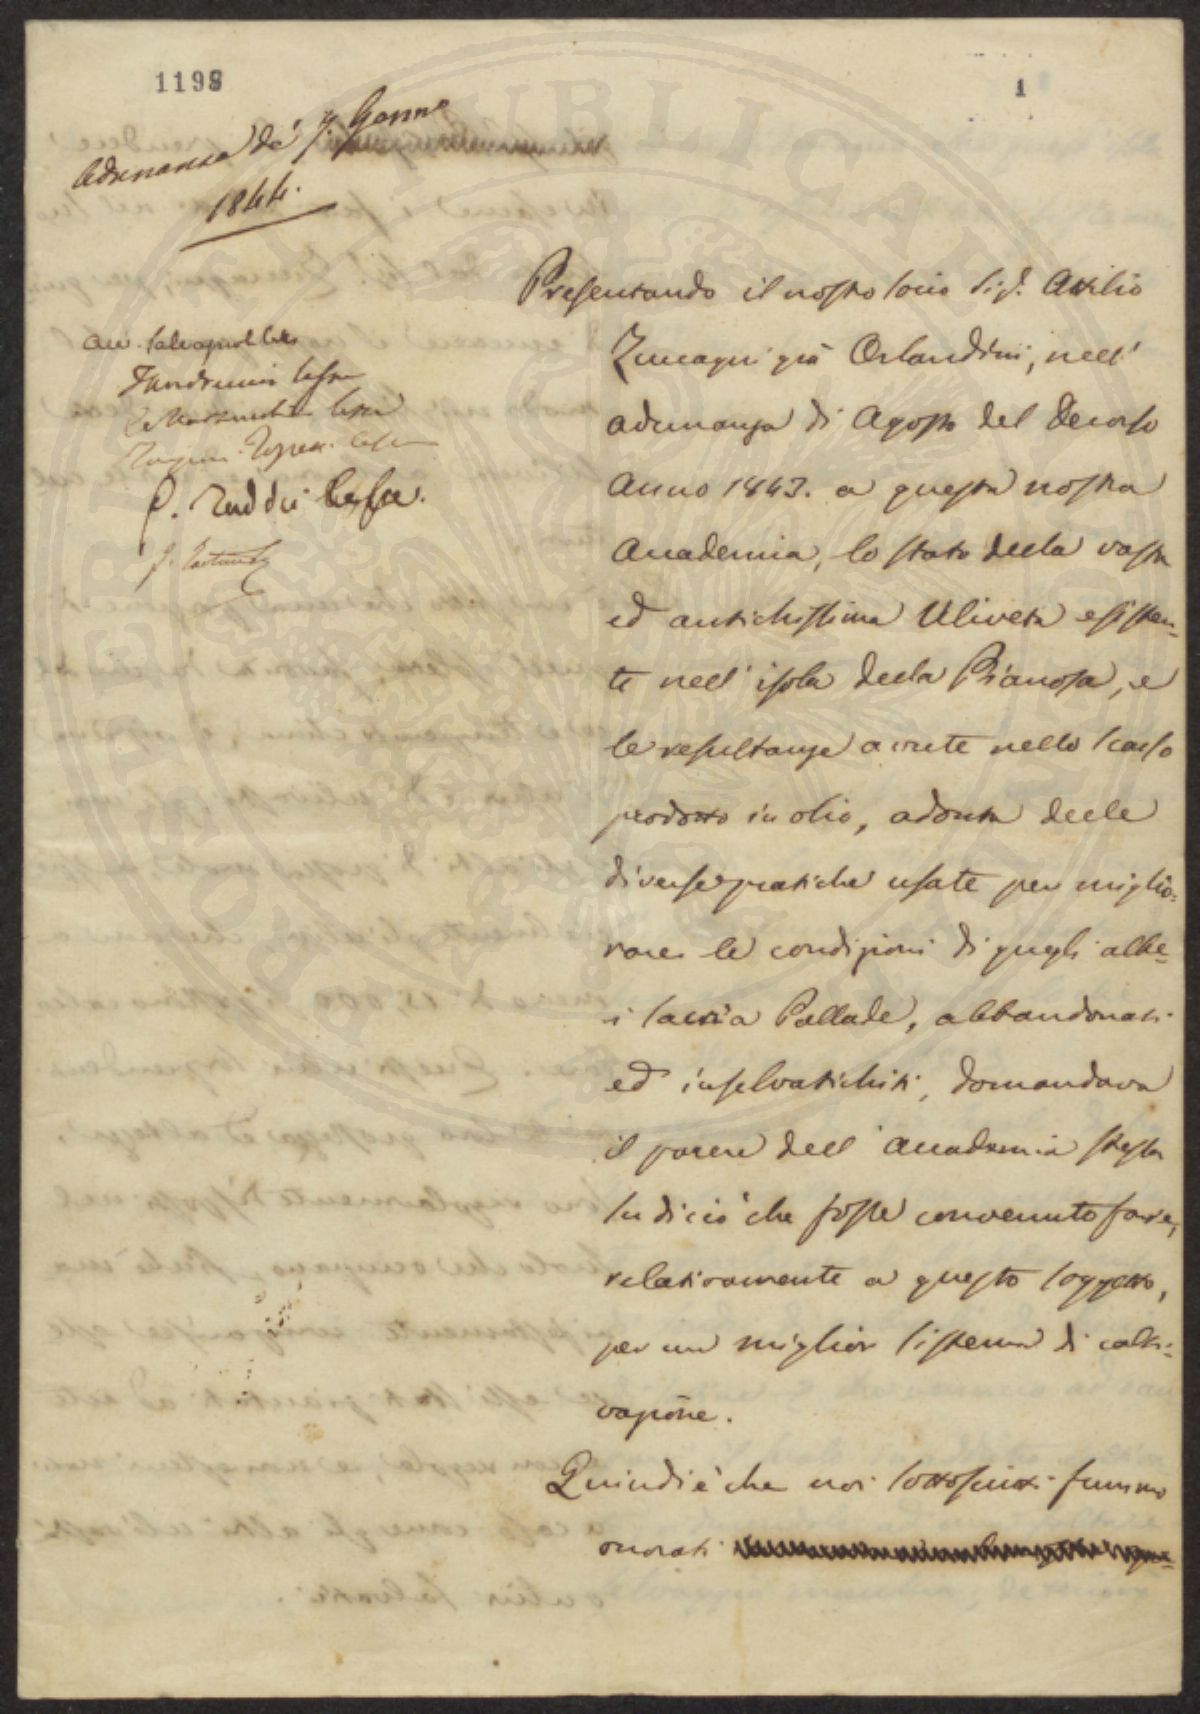 1198
1
Adunanza de' 7 Genno
1844.
Presentando il nostro Socio Sigr. Attilio
Zuccagni già Orlandini, nell'
adunanza di Agosto del decorso
Anno 1843. a questa nostra
Accademia, lo stato della vasta
ed antichissima Uliveta esisten=
te nell' isola della Pianosa, e
le resultanze avute nello scarso
prodotto in olio, ad onta delle
diverse pratiche usate per miglio=
rare le condizioni di quegli albe=
i sacri a Pallade, abbandonati
ed inselvatichiti, domandava
il parere dell' Accademia stessa
su di ciò che fosse convenuto fare,
relativamente a questo soggetto,
per un miglior sistema di colti=
vazione.
Quindi è che noi sottoscritti fummo
onorati